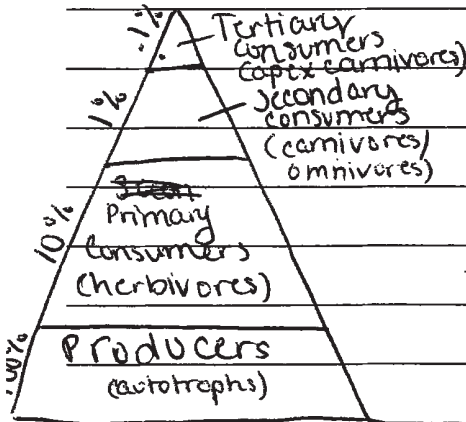 .1%
Tertiary
consumers
(apex carnivores)
1%
secondary
consumers
(carnivores/
omnivores)
10%
Primary
consumers
(herbivores)
100%
Producers
(autotrophs)